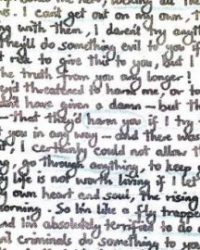 ws. I can't get out on my own, t
g with them, I daren't try anyth
they'll do something evil to you if
rise to give this to you, but I
he truth from you any longer!
y'd threatened to harm me, or to
dn't have given a damn - but th
- that they'd harm you if I try
you in any way - and there was
, I certainly could not allow th
g, go through anything, to keep
y life is not worth living if I let
own heart and soul, the rising
orning. So I'm like a fly trapped
nd I'm absolutely terrified to do
il criminals do something to you